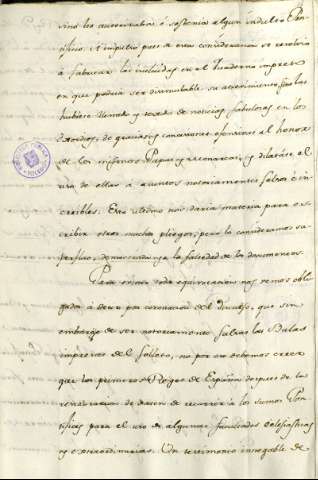 sino los autorizaba ó sostenia algun indulto Pon-
tificio. A impulso pues de esta consideracion se
á fabricar las incluidas en el Quaderno impreso
en que podria ser disimulable su atrevimiento sino las
hubiera llenado y de noticias fabulosas en los
de graciosas concesiones ofensivas al honor
de los mismos Papas y Monarcas, y dilatase el
uso de ellas á asuntos notoriamente falsos é in-
creibles. Esto ultimo nos daria materia para es-
cribir otros muchos pliegos, pero la consideramos su-
perfluo, demostrada ya la falsedad de los documentos.
Para evitar toda equivocacion nos vemos obli-
gados á decir por conclusion del Discurso, que sin
embargo de ser notoriamente falsas las Bulas
impresas del folleto, no por eso debemos creer
que los primeros Reyes de España despues de la
dexasen de recurrir á los Sumos Pon-
tifices para el uso de algunas facultades eclesiasticas
y extraordinarias. Un testimonio innegable de